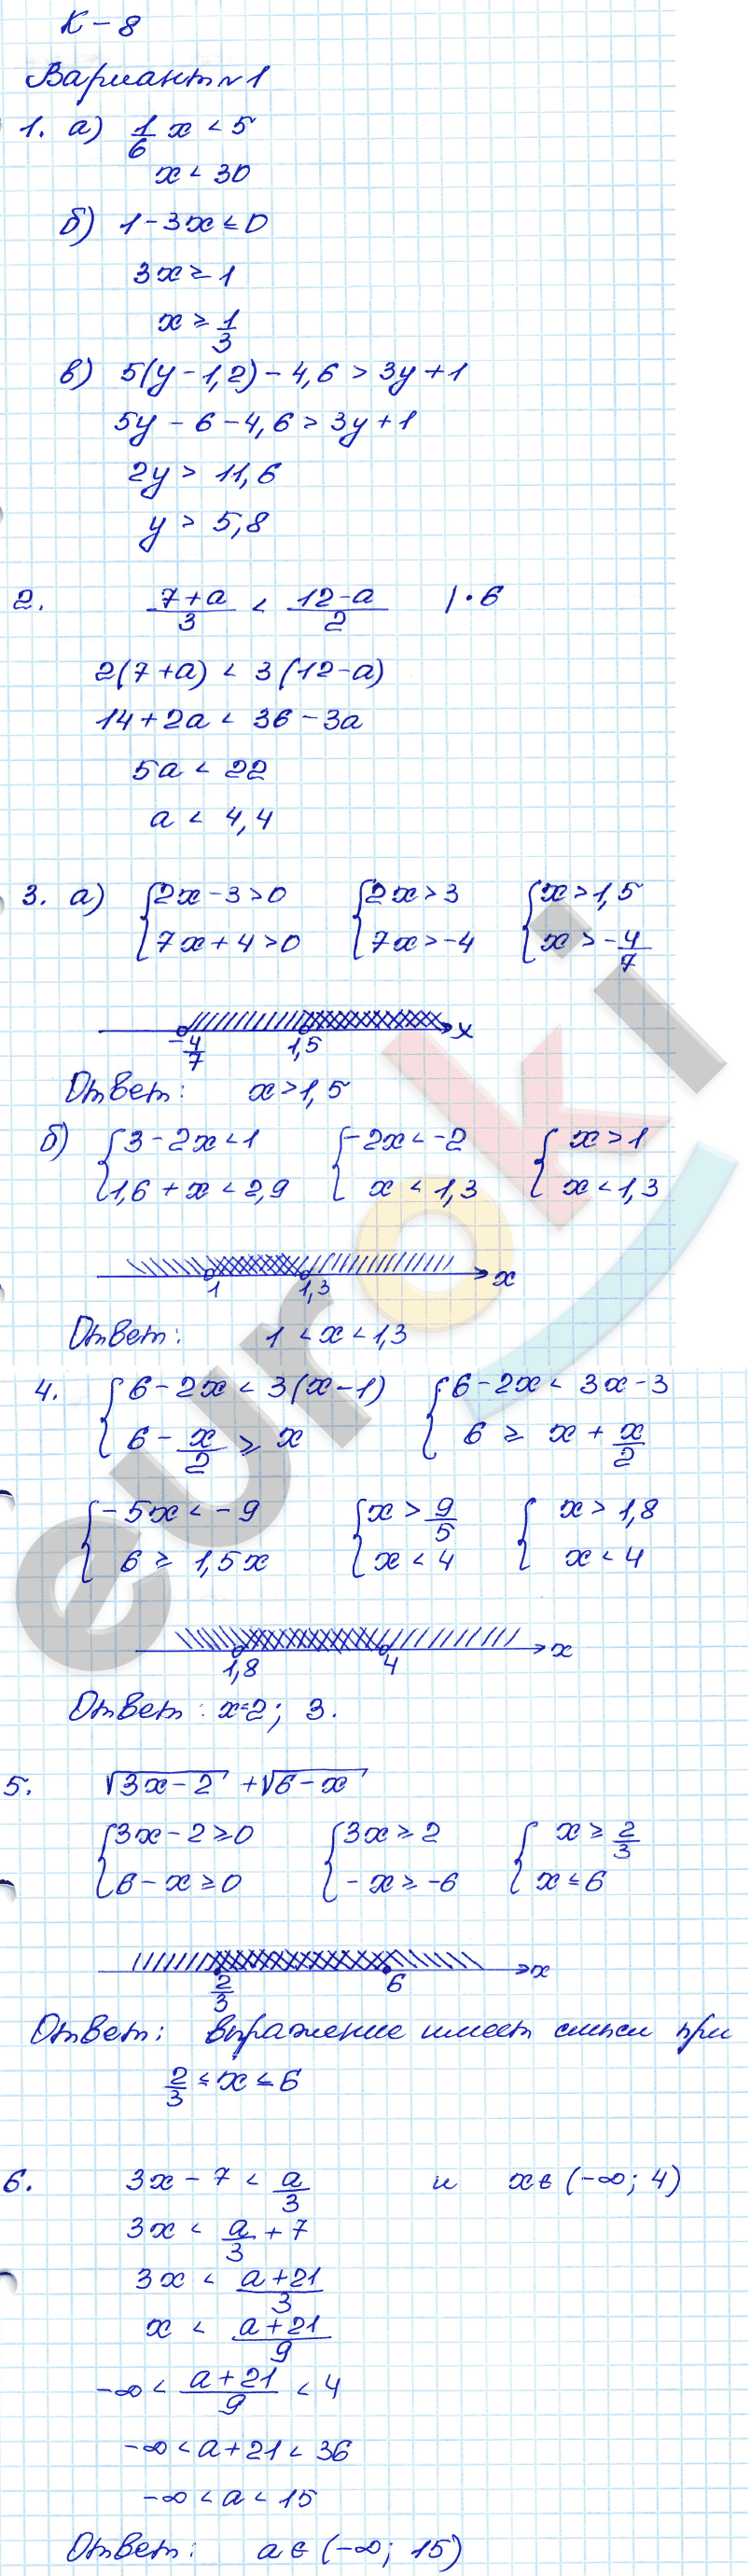 К – 8
Вариант № 1
1. а) 1/6 x < 5
x < 30
б) 1 - 3x ≤ 0
3x ≥ 1
x ≥ 1/3
в) 5(y - 1,2) - 4,6 > 3y + 1
5y - 6 - 4,6 > 3y + 1
2y > 11,6
y > 5,8
2. (7+a)/3 < (12-a)/2 | · 6
2(7+a) < 3(12-a)
14 + 2a < 36 - 3a
5a < 22
a < 4,4
3. а) {2x - 3 > 0 {2x > 3 {x > 1,5
{7x + 4 > 0 {7x > -4 {x > -4/7
-4/7 1,5 x
Ответ: x > 1,5
б) {3 - 2x < 1 {-2x < -2 {x > 1
{1,6 + x < 2,9 {x < 1,3 {x < 1,3
1 1,3 x
Ответ: 1 < x < 1,3
4. {6 - 2x < 3(x - 1) {6 - 2x < 3x - 3
{6 - x/2 ≥ x {6 ≥ x + x/2
{-5x < -9 {x > 9/5 {x > 1,8
{6 ≥ 1,5x {x < 4 {x < 4
1,8 4 x
Ответ: x = 2; 3.
5. √(3x - 2) + √(6 - x)
{3x - 2 ≥ 0 {3x ≥ 2 {x ≥ 2/3
{6 - x ≥ 0 {-x ≥ -6 {x ≤ 6
2/3 6 x
Ответ: выражение имеет смысл при
2/3 ≤ x ≤ 6
6. 3x - 7 < a/3 и x ∈ (-∞; 4)
3x < a/3 + 7
3x < (a+21)/3
x < (a+21)/9
-∞ < (a+21)/9 < 4
-∞ < a + 21 < 36
-∞ < a < 15
Ответ: a ∈ (-∞; 15)
euroki